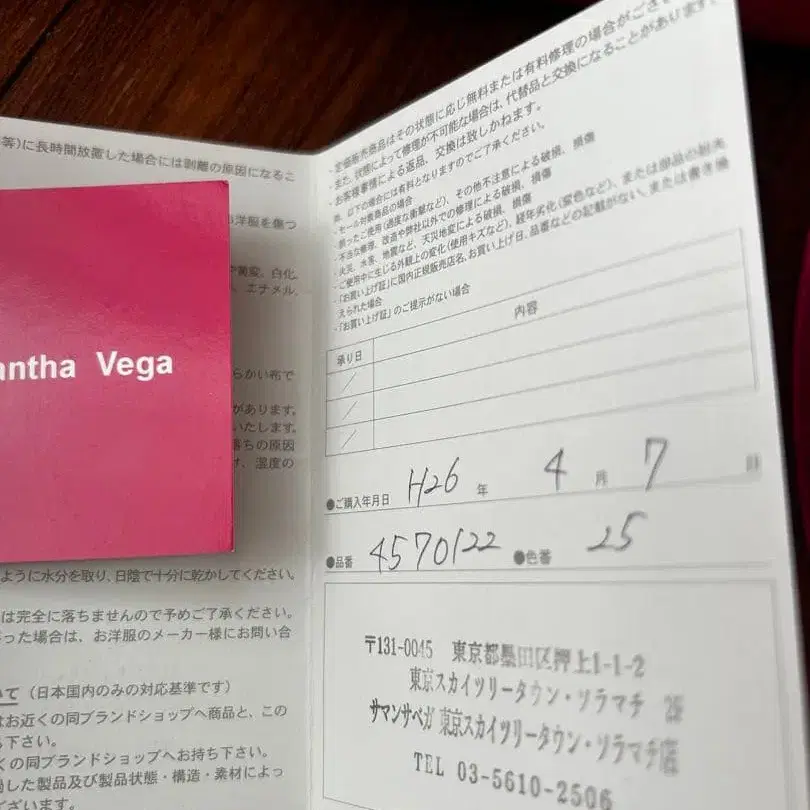 等)に長時間放置した場合には剥離の原因になるこ
お洋服を傷つ
や黄変、白化、
、エナメル、
antha Vega
らかい布で
があります。
いたします。
落ちの原因
す、湿度の
ように水分を取り、日陰で十分に乾かしてください。
は完全に落ちませんので予めご了承ください。
った場合は、お洋服のメーカー様にお問い合
いて（日本国内のみの対応基準です）
はお近くの同ブランドショップへ商品と、この
ち下さい。
くの同ブランドショップへお持ち下さい。
した製品及び製品状態・構造・素材によっ
ございます。
・定価販売商品はその状態に応じ無料または有料修理の場合がござい
・また、状態によって修理が不可能な場合は、代替品と交換になることがあります。
・お客様事情による返品、交換は致しかねます。
尚、以下の場合には有料となりますのでご了承ください。
・セール対象商品の場合
・誤ったご使用(過度な衝撃など)、その他不注意による破損、損傷
・不当な修理、改造や弊社以外での修理による破損、損傷
・火災、水害、地震など、天災地変による破損、損傷
・ご使用中に生じる外観上の変化(使用キズなど)、経年劣化(変色など)、または部品の紛失
・「お買い上げ証」に国内正規販売店名、お買い上げ日、品番などの記載がない、または書き換
えられた場合
・「お買い上げ証」のご提示がない場合
承り日 内容
／
／
／
●ご購入年月日 H26 年 4 月 7 日
●品番 4570122 ●色番 25
〒131-0045 東京都墨田区押上1-1-2
東京スカイツリータウン・ソラマチ 2F
サマンサベガ 東京スカイツリータウン・ソラマチ店
TEL 03-5610-2506